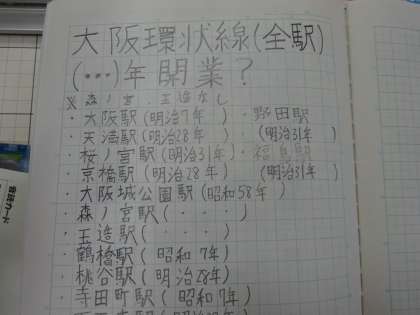 大阪環状線(全駅)
(…)年開業?
※森ノ宮.玉造なし
・大阪駅(明治7年)・野田駅
・天満駅(明治28年)(明治31年)
・桜ノ宮駅(明治31年)・福島駅
・京橋駅(明治28年)(明治31年)
・大阪城公園駅(昭和58年)
・森ノ宮駅(・・・)
・玉造駅(・・・)
・鶴橋駅(昭和7年)
・桃谷駅(明治28年)
・寺田町駅(昭和7年)